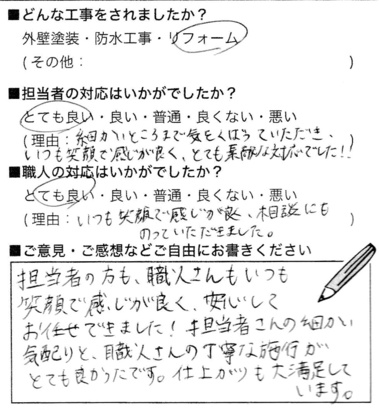 ■どんな工事をされましたか？
外壁塗装・防水工事・リフォーム
（その他：　　　　　　　　　　）
■担当者の対応はいかがでしたか？
とても良い・良い・普通・良くない・悪い
（理由：細かいところまで気をくばっていただき、
いつも笑顔で感じが良く、とても素敵な対応でした!!）
■職人の対応はいかがでしたか？
とても良い・良い・普通・良くない・悪い
（理由：いつも笑顔で感じが良く、相談にも
のっていただきました。）
■ご意見・ご感想などご自由にお書きください
担当者の方も、職人さんもいつも
笑顔で感じが良く、安心して
お任せできました！担当者さんの細かい
気配りと、職人さんの丁寧な施行が
とても良かったです。仕上がりも大満足して
います。